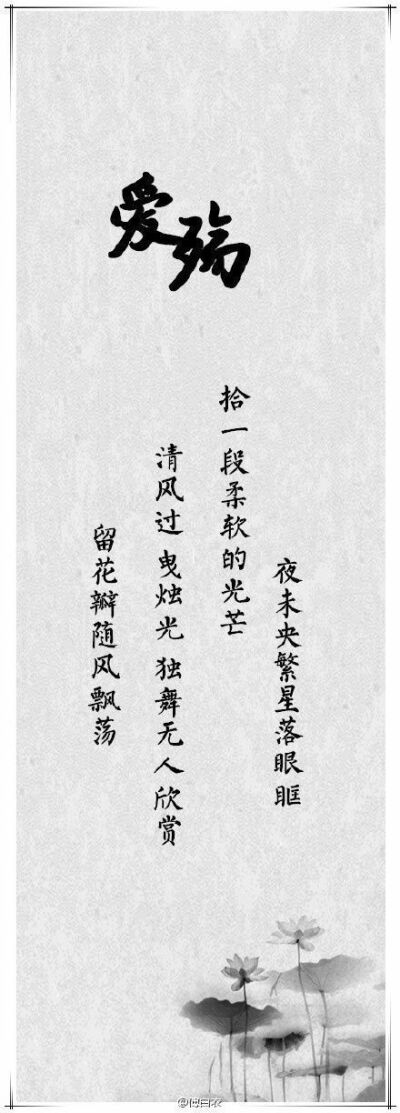 爱殇
夜未央繁星落眼眶
拾一段柔软的光芒
清风过 曳烛光 独舞无人欣赏
留花瓣随风飘荡